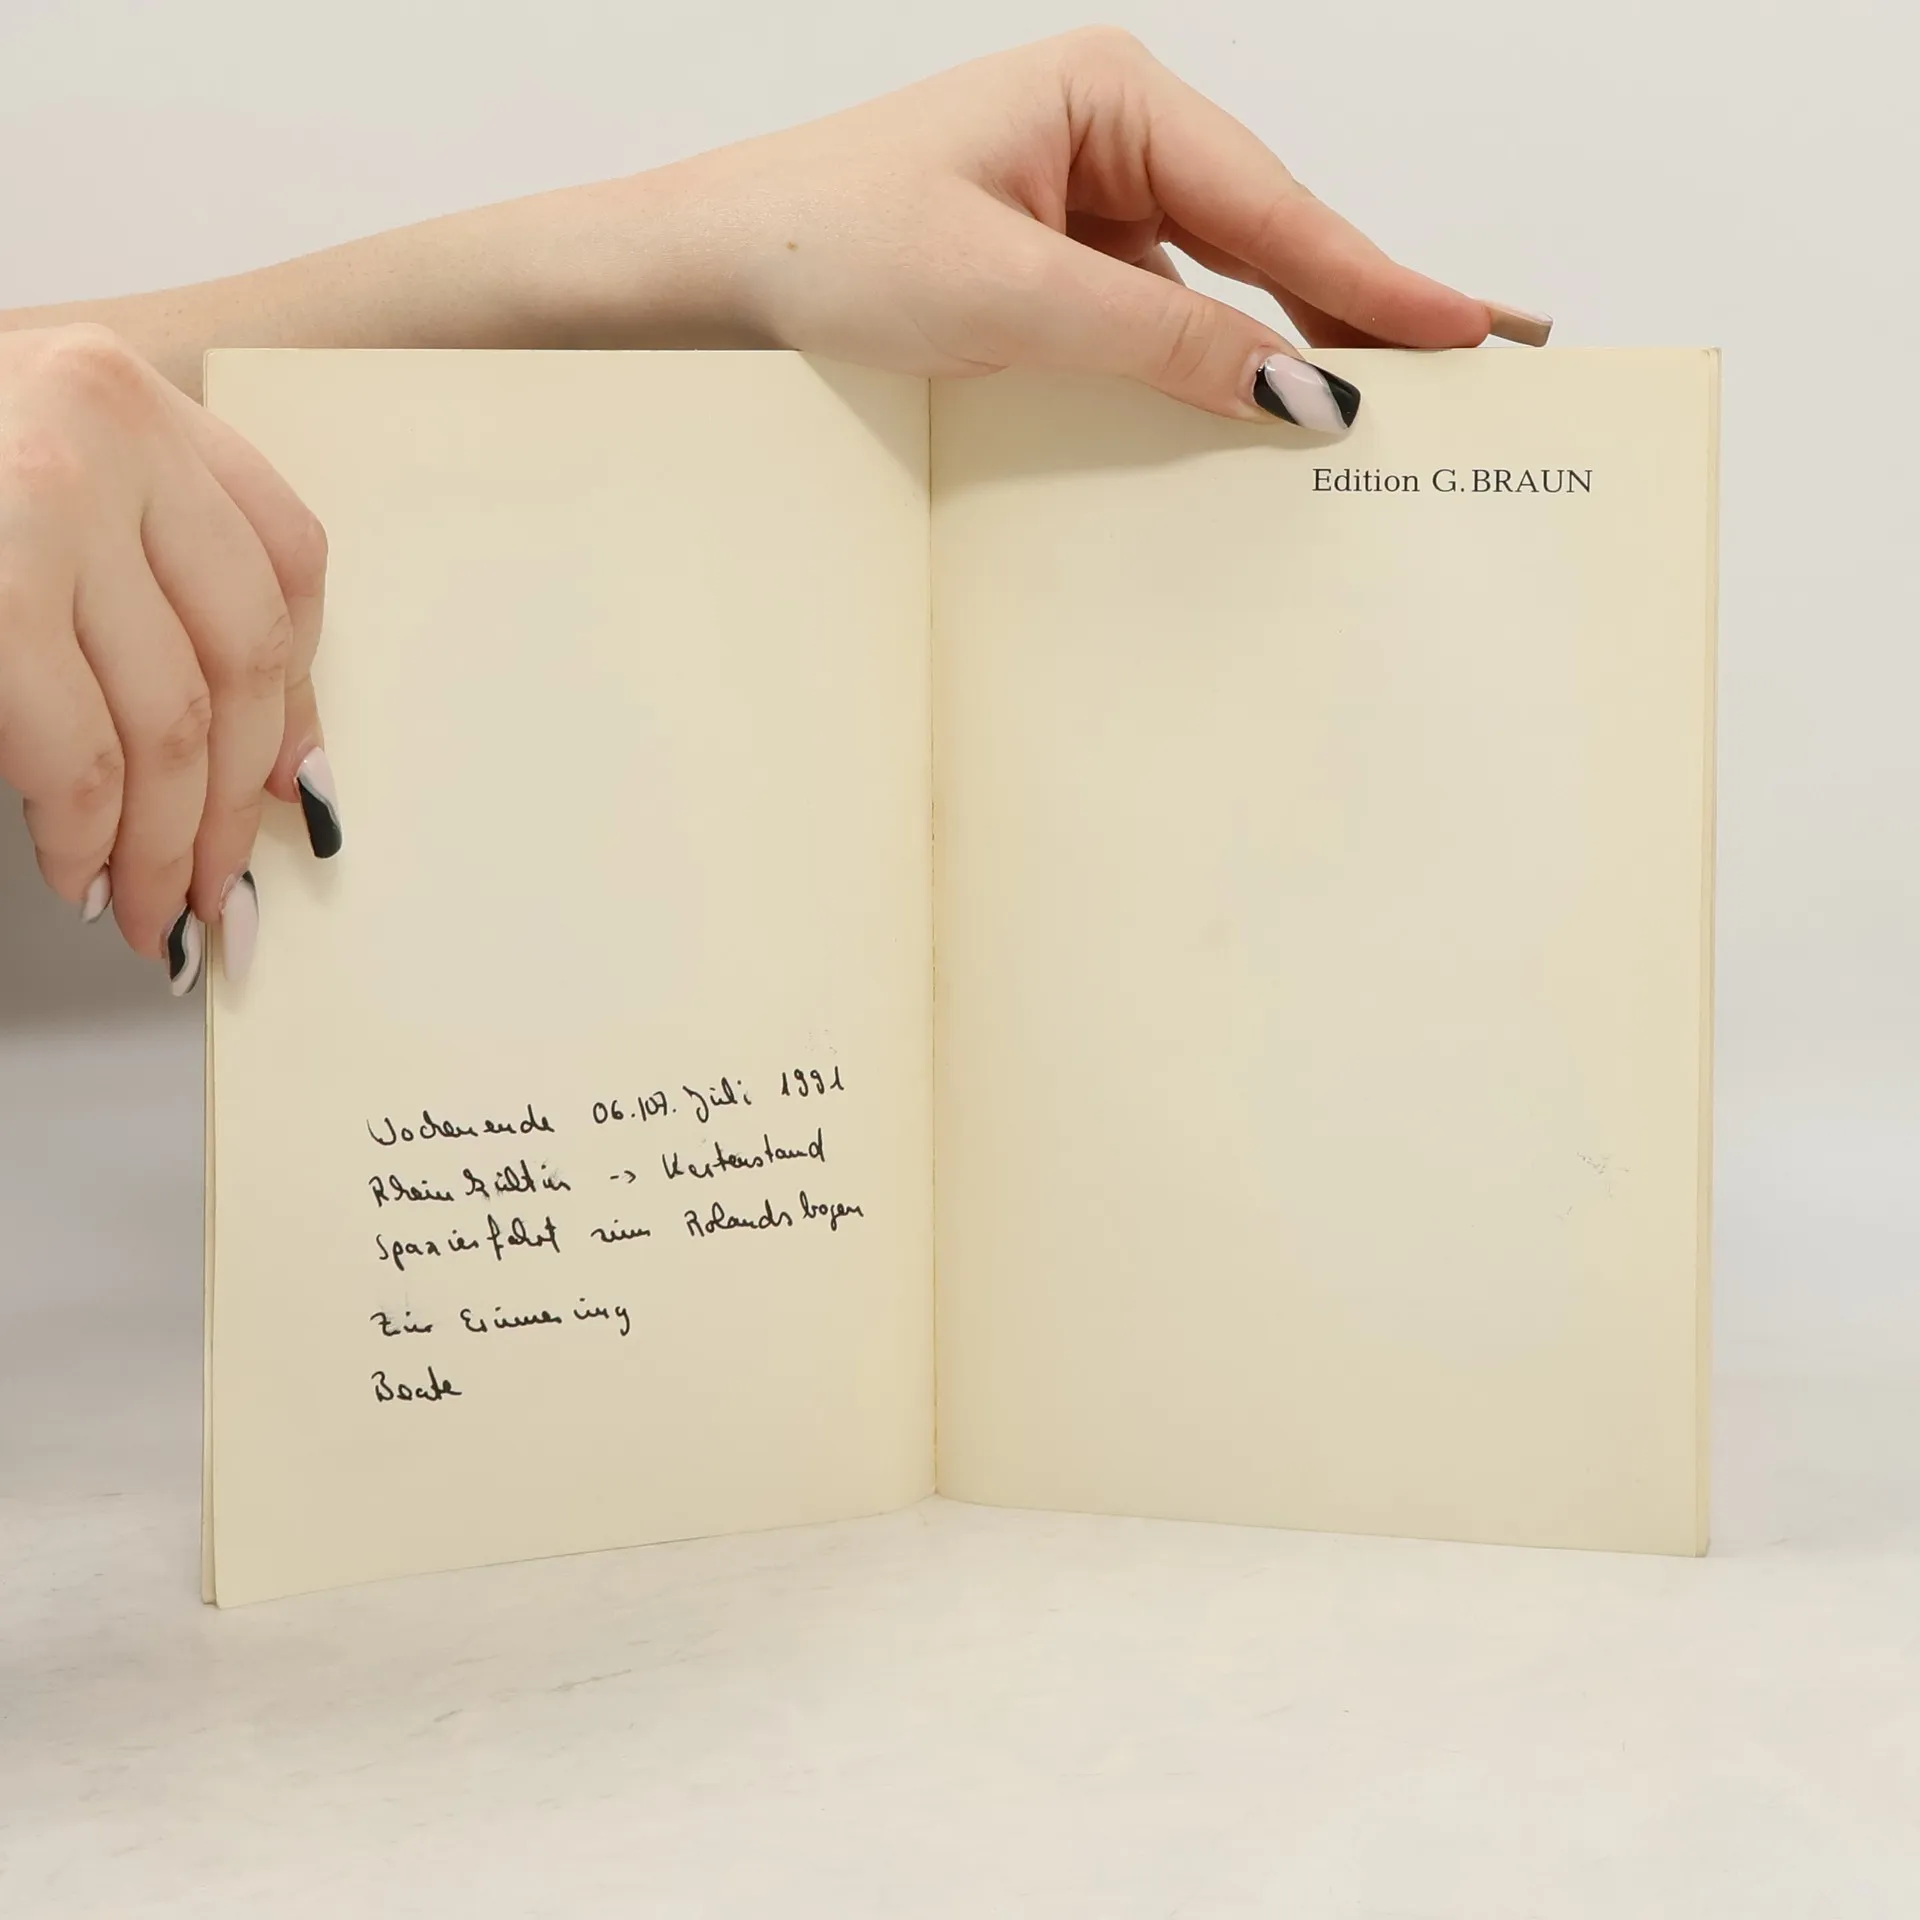 Wochenende 06./07. Juli 1991
Rhein -> Kartenstand
Spazierfahrt zum Rolandsbogen
Zur Erinnerung
Beate
Edition G. BRAUN